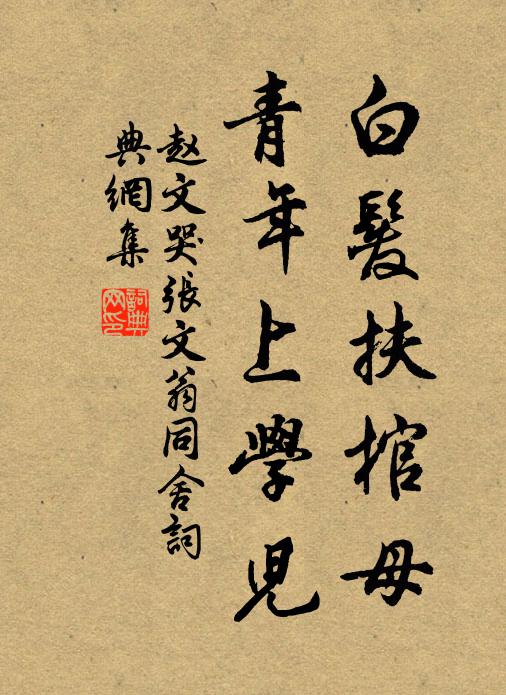 白髮扶棺母
青年上學兒
赵文哭張文翁同舍詞
典網集
詞典
网印